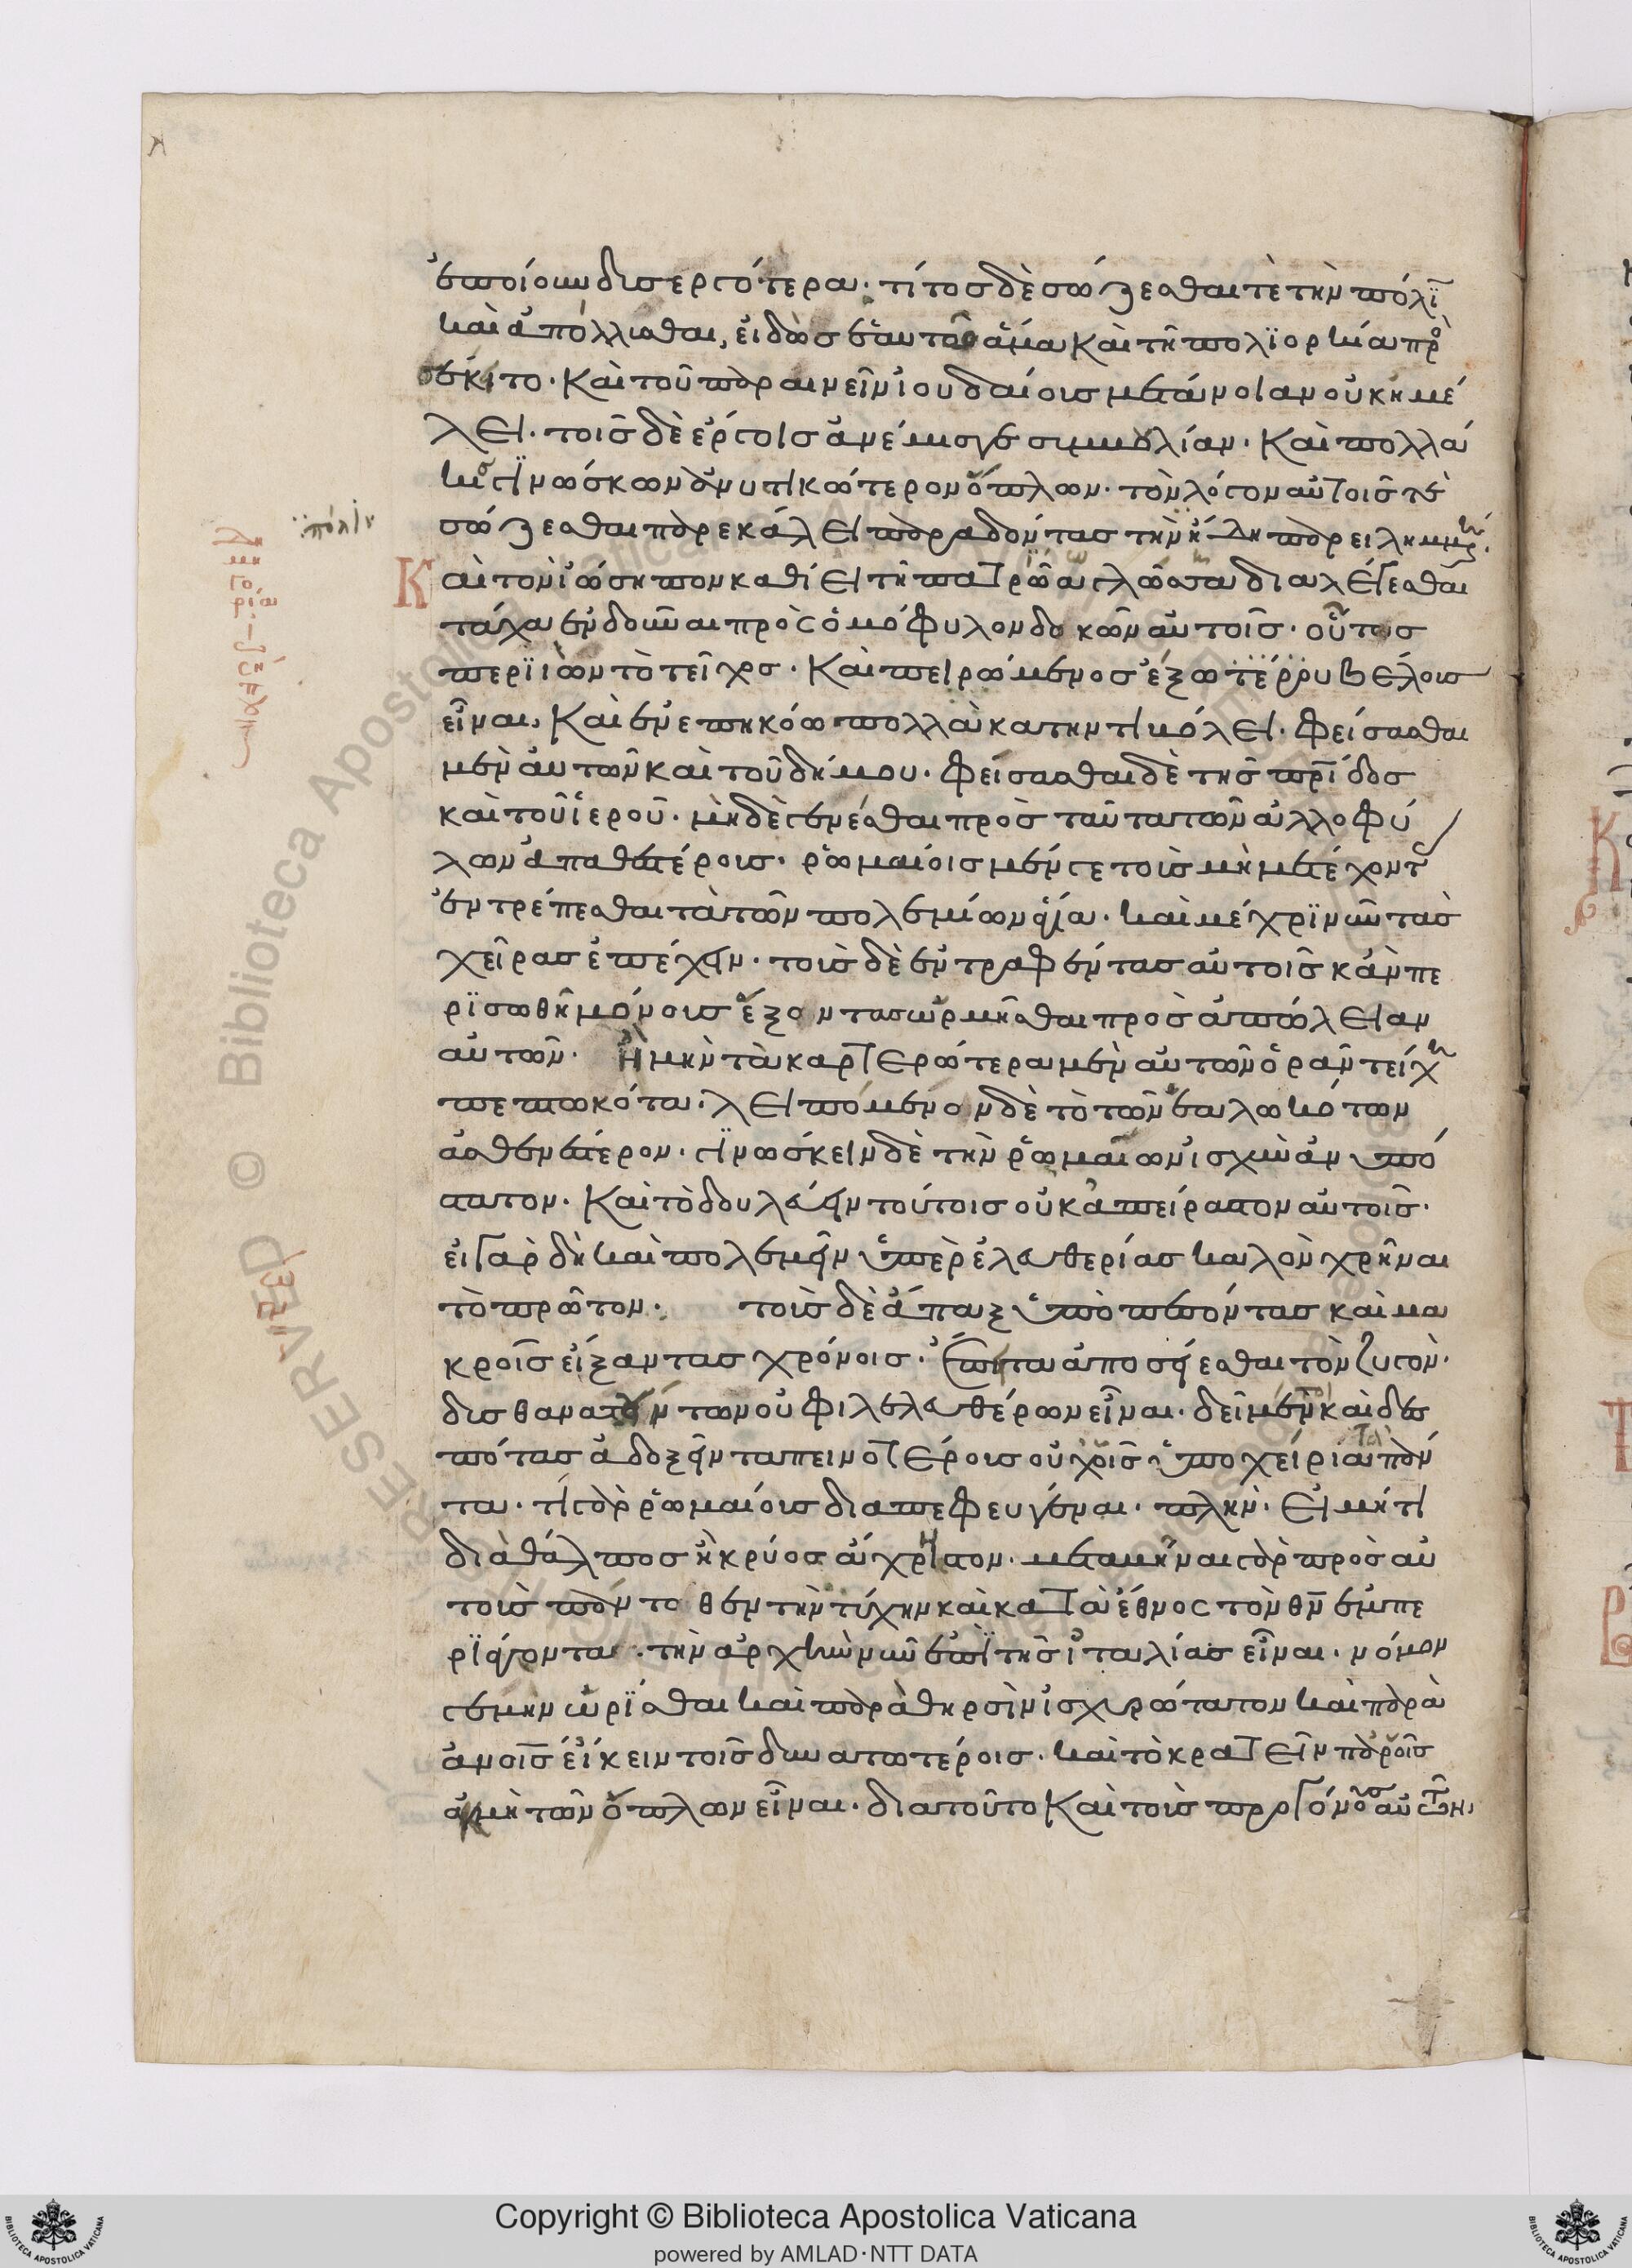 ἐποίουν δυσεργότερα· τίτος δὲ σώζεσθαι τὲ τὴν πόλϊν
καὶ ἀπόλλυσθαι, εἰδὼς ἑαυτῶ ἅμα καὶ τῆ πολϊορκία προ
σέκειτο· καὶ τοῦ παραινεῖν ἰουδαίοις μετάνοιαν οὐκ ἠμέ
λει· τοῖς δὲ ἔργοις ἀνέμισγε συμβουλίαν· καὶ πολλά
κις γϊνώσκων ἀνυτικώτερον ὅπλων τὸν λόγον αὐτοῖς τὲ
σώζεσθαι παρεκάλει παραδόντας τὴν ἤδη παρειλημμένην·
Καὶ τὸν ἰώσηπον καθίει τῆ πατρώα γλώσσα διαλέγεσθαι
τάχα ἐνδοῦναι πρὸς ὁμόφυλον δοκῶν αὐτοῖς· οὗτος
περϊιὼν τὸ τεῖχος· καὶ πειρώμενος ἐξωτέρου βέλους
εἶναι, καὶ ἐν ἐπηκόω πολλὰ κατηντιβόλει· φείσασθαι
μὲν αὐτῶν καὶ τοῦ δήμου· φείσασθαι δὲ τῆς πατρίδος
καὶ τοῦ ἱεροῦ· μὴ δὲ γενέσθαι πρὸς ταῦτα τῶν ἀλλοφύ
λων ἀπαθεστέρους· ῥωμαίους μέν γε τοὺς μὴ μετέχοντας
ἐντρέπεσθαι τὰ τῶν πολεμίων ἅγια· καὶ μέχρϊ νῦν τὰς
χεῖρας ἐπέχειν· τοὺς δὲ ἐντραφέντας αὐτοῖς κἀν πε
ρϊσωθῆ μόνους ἕξοντας ὡρμῆσθαι πρὸς ἀπώλειαν
αὐτῶν· ἦ μὴν τὰ καρτερώτερα μὲν αὐτῶν ὁρᾶν τείχη
πεπτωκότα· λειπόμενον δὲ τὸ τῶν ἑαλωκότων
ἀσθενέστερον· γϊνώσκειν δὲ τὴν ῥωμαίων ἰσχὺν ἀνυπό
στατον· καὶ τὸ δουλεύειν τούτοις οὐκ ἀπείραστον αὐτοῖς·
εἰ γὰρ δὴ καὶ πολεμεῖν ὑπὲρ ἐλευθερίας καλὸν χρῆναι
τὸ πρῶτον· τοὺς δὲ ἅπαξ ὑποπεσόντας καὶ μα
κροῖς εἴξαντας χρόνοις· ἔπειτα ἀποσείεσθαι τὸν ζυγὸν·
δυσθανατούντων οὐ φιλελευθέρων εἶναι· δεῖν μὲν καὶ δεσ
πότας ἀδοξεῖν ταπεινοτέρους οὐχ οἷς ὑποχείρια τὰ πάν
τα· τί γὰρ ῥωμαίους διαπεφευγέναι· πλὴν· εἰ μή τι
διὰ θάλπος ἢ κρύος ἄχρηστον· μεταβῆναι γὰρ πρὸς αὐ
τοὺς πάντοθεν τὴν τύχην καὶ κατὰ ἔθνος τὸν θν ἐμπε
ρϊάγοντα· τὴν ἀρχὴν νῦν ἐπὶ τῆς ἰταλίας εἶναι· νόμον
γε μὴν ὡρίσθαι καὶ παρὰ θηρσὶν ἰσχυρώτατον καὶ παρὰ
ἀνοις εἴκειν τοῖς δυνατωτέροις· καὶ τὸ κρατεῖν παρ οἷς
ἀκμὴ τῶν ὅπλων εἶναι· διατοῦτο καὶ τοὺς προγόνους αὐτῶν
πόλιν